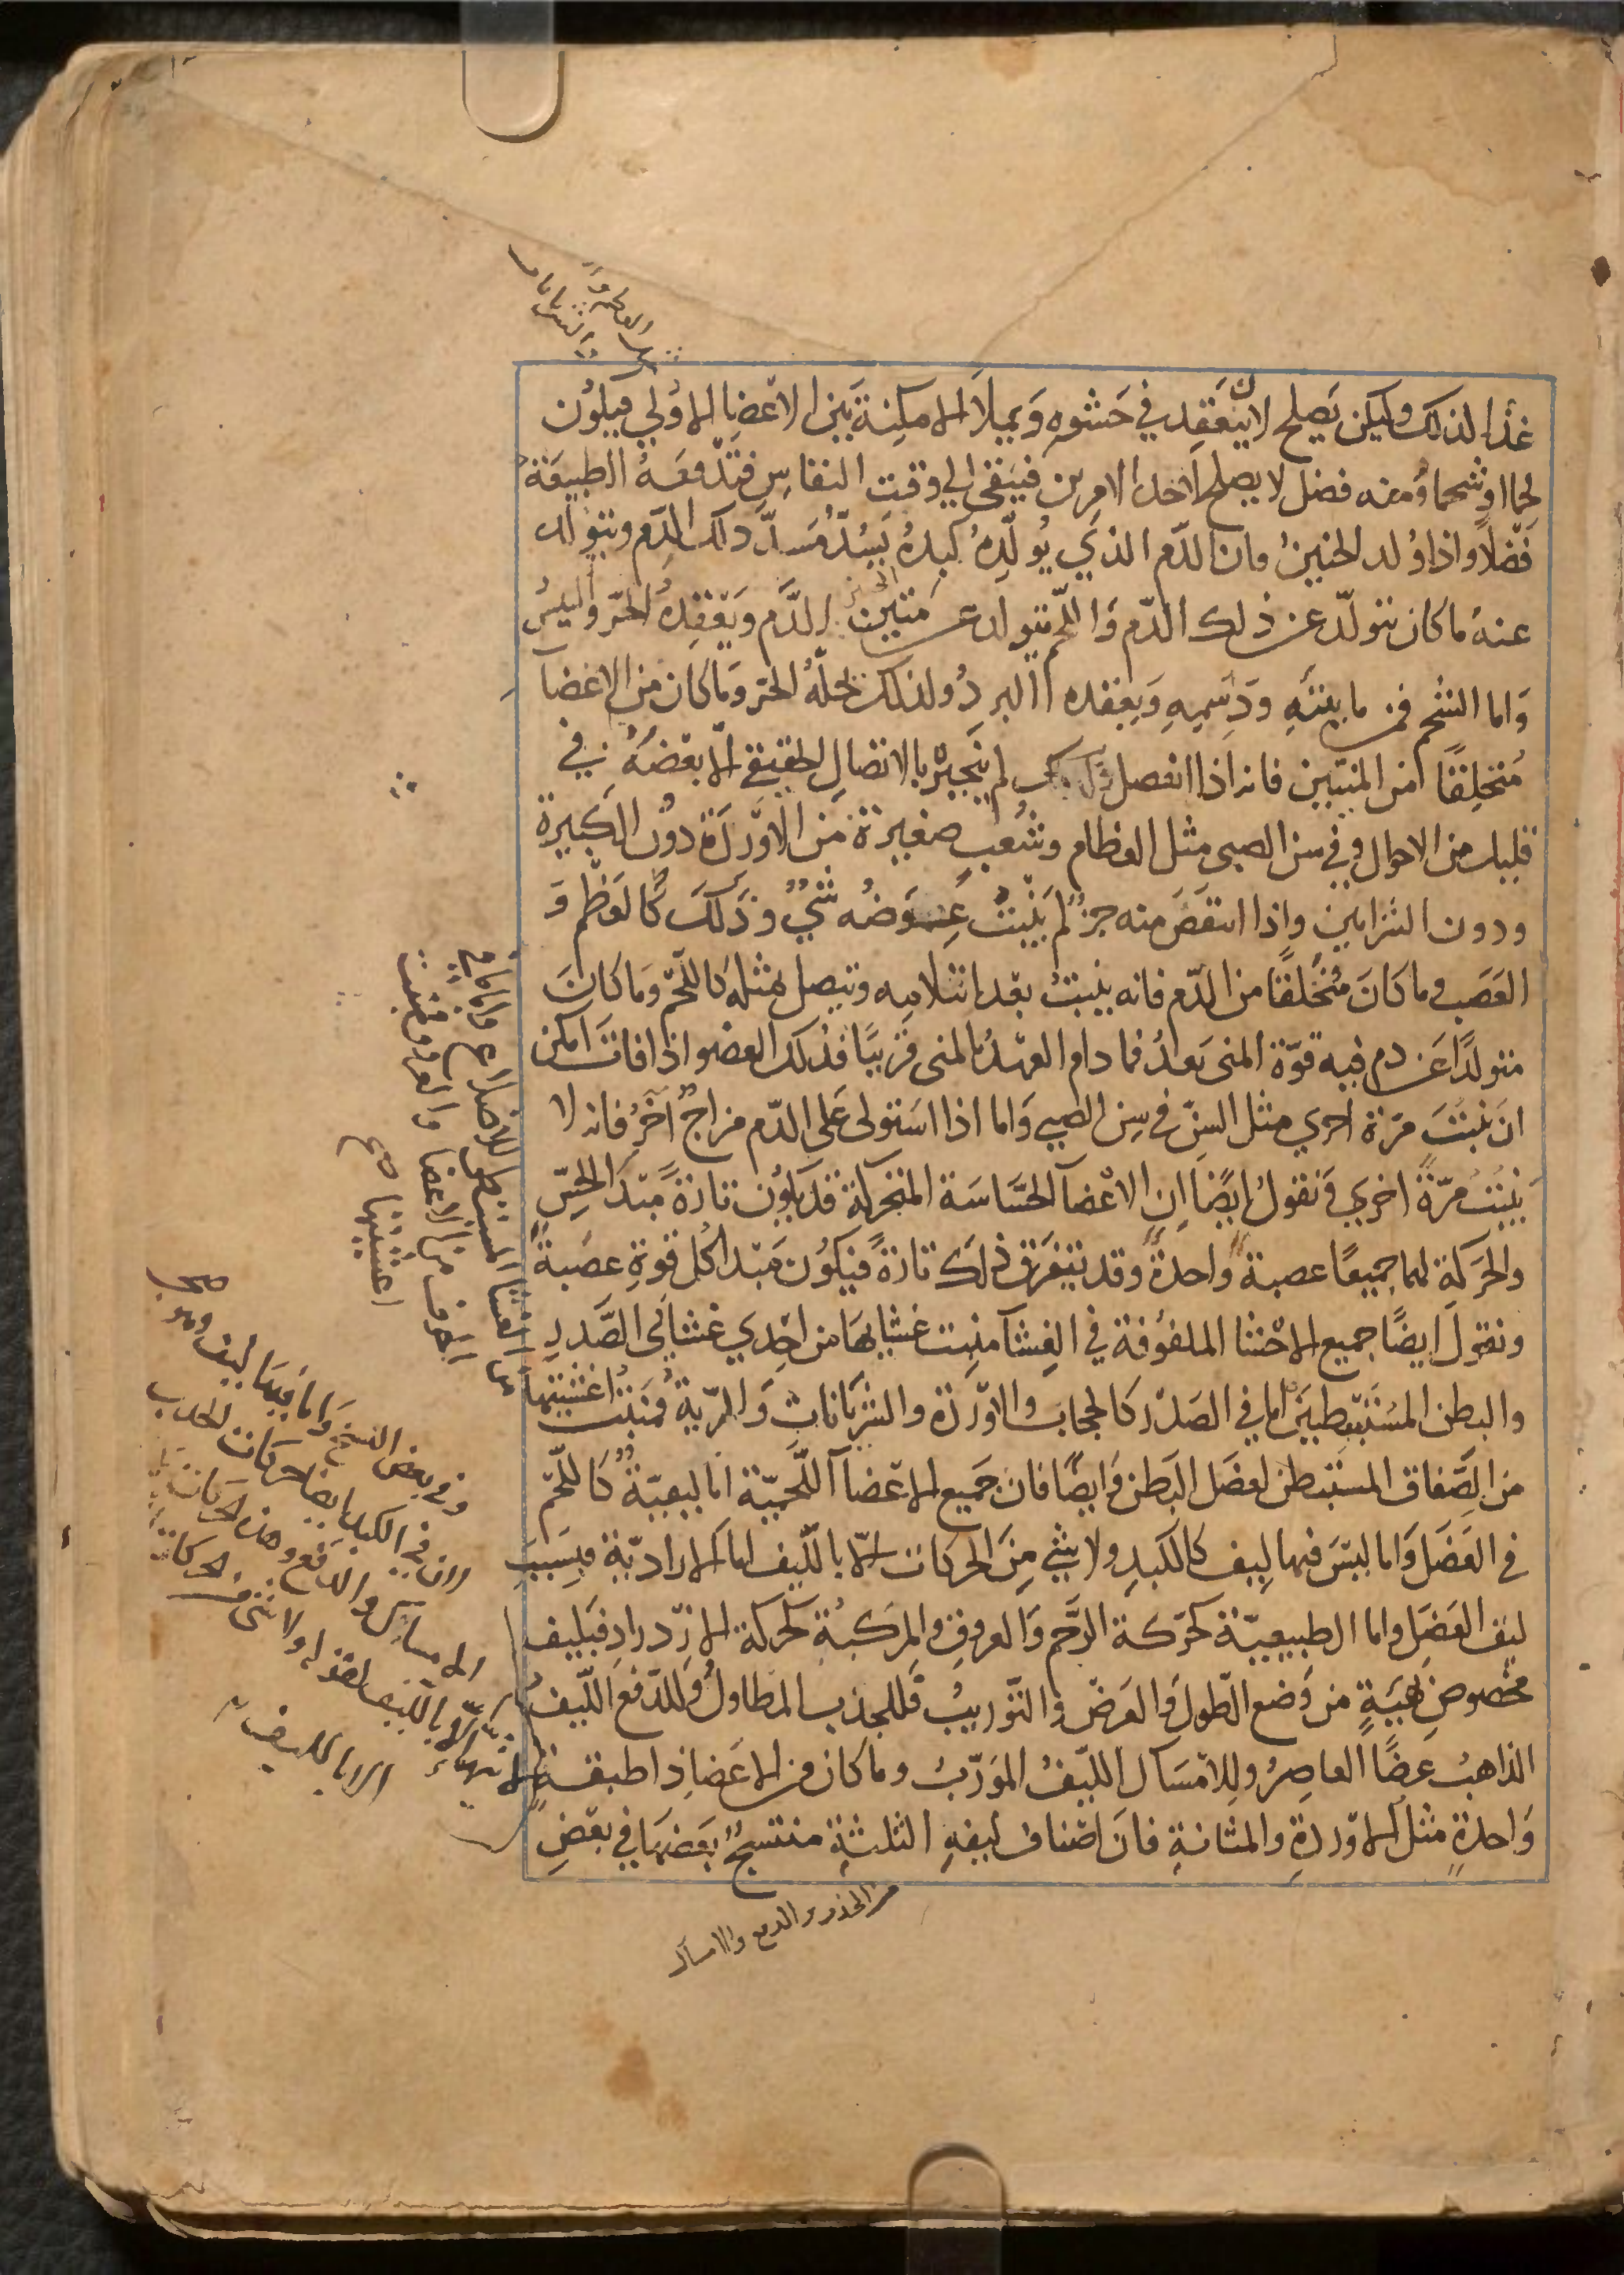 غذا لذلك ولكن يصلح لان ينعقد في حشوه ويملا الامكنة بين الاعضا الاولي فيكون
لحما او شحما ومنه فضل لا يصلح لاحد الامرين فيبقي الي وقت النفاس فتدفعه الطبيعة
فضلا واذا ولد الجنين فان الدم الذي يولده كبده يسد مسد ذلك الدم ويتولد
عنه ما كان يتولد عن ذلك الدم واللحم يتولد عن متين الدم ويعقده الحر واليبس
واما الشحم فمن مائيته ودسمه ويعقده البرد ولذلك يحله الحر وما كان من الاعضا
متخلقا من المنيين فانه اذا انفصل لم ينجبر بالاتصال الحقيقي الا بعضه في
قليل من الاحوال وفي سن الصبي مثل العظام وشعب صغيرة من الاوردة دون الكبيرة
ودون الشرايين واذا انتقص منه جزء لم ينبت عوضه شيء وذلك كالعظم و
العصب وما كان متخلقا من الدم فانه ينبت بعد انثلامه ويتصل بمثله كاللحم وما كان
متولدا عن دم فيه قوة المني بعد فما دام العهد بالمني قريبا فذلك العضو اذا فات امكن
ان ينبت مرة اخري مثل السن في سن الصبي واما اذا استولي علي الدم مزاج اخر فانه لا
ينبت مرة اخري ونقول ايضا ان الاعضا الحساسة المتحركة قد يكون تارة مبدا الحس
والحركة لهما جميعا عصبة واحدة وقد يتفرق ذلك تارة فيكون مبدا كل قوة عصبة
ونقول ايضا جميع الاحشا الملفوفة في الغشا منبت غشايها من احدي غشائي الصدر
والبطن المستبطنين اما في الصدر كالحجاب والاوردة والشريانات والرية فمنبت اغشيتها
من الصفاق المستبطن لعضل البطن وايضا فان جميع الاعضا اللحمية اما ليفية كاللحم
في العضل واما ليس فيها ليف كالكبد ولا شي من الحركات الا بالليف اما الارادية فبسبب
ليف العضل واما الطبيعية كحركة الرحم والعروق والمركبة كحركة الازدراد فبليف
مخصوص بهية من وضع الطول والعرض والتوريب فللجذب المطاول وللدفع الليف
الذاهب عرضا العاصر وللامساك الليف المورب وما كان من الاعضا ذا طبقة
واحدة مثل الاوردة والمثانة فان اصناف ليفه الثلثة منتسج بعضها في بعض
من الغشا المستبطن للاضلاع واما ما في
الجوف من الاعضا والعروق فمنبت
اغشيتها صح
وفي بعض النسخ واما فيها ليف وهو